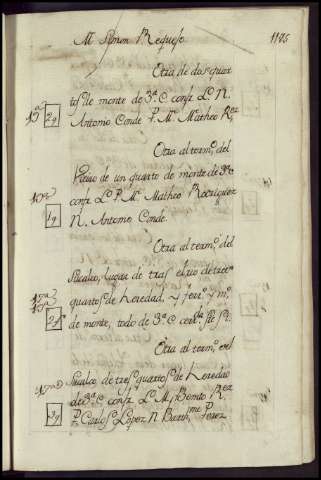 Mᵃ Simon Requejo 1185
Otra de dos quar
tos de monte de 3ª C confr. L. N.
Antonio Conde P. Mⁿ Matheo Rez
2q
Otra al termº del
de un quarto de monte de 3ª C
confr. L. P. Mⁿ Matheo Rodriguez
1q
N. Antonio Conde
Otra al termº del
lugar de tras el rio de tres
quartos de heredad, y ferrº y mº
de monte, todo de 3ª C
Otra al termº en el
de tres quartos de heredad
de 3ª C confr. L. M. Benito Rez
3q
P. Carlos Lopez N. Barthme Perez